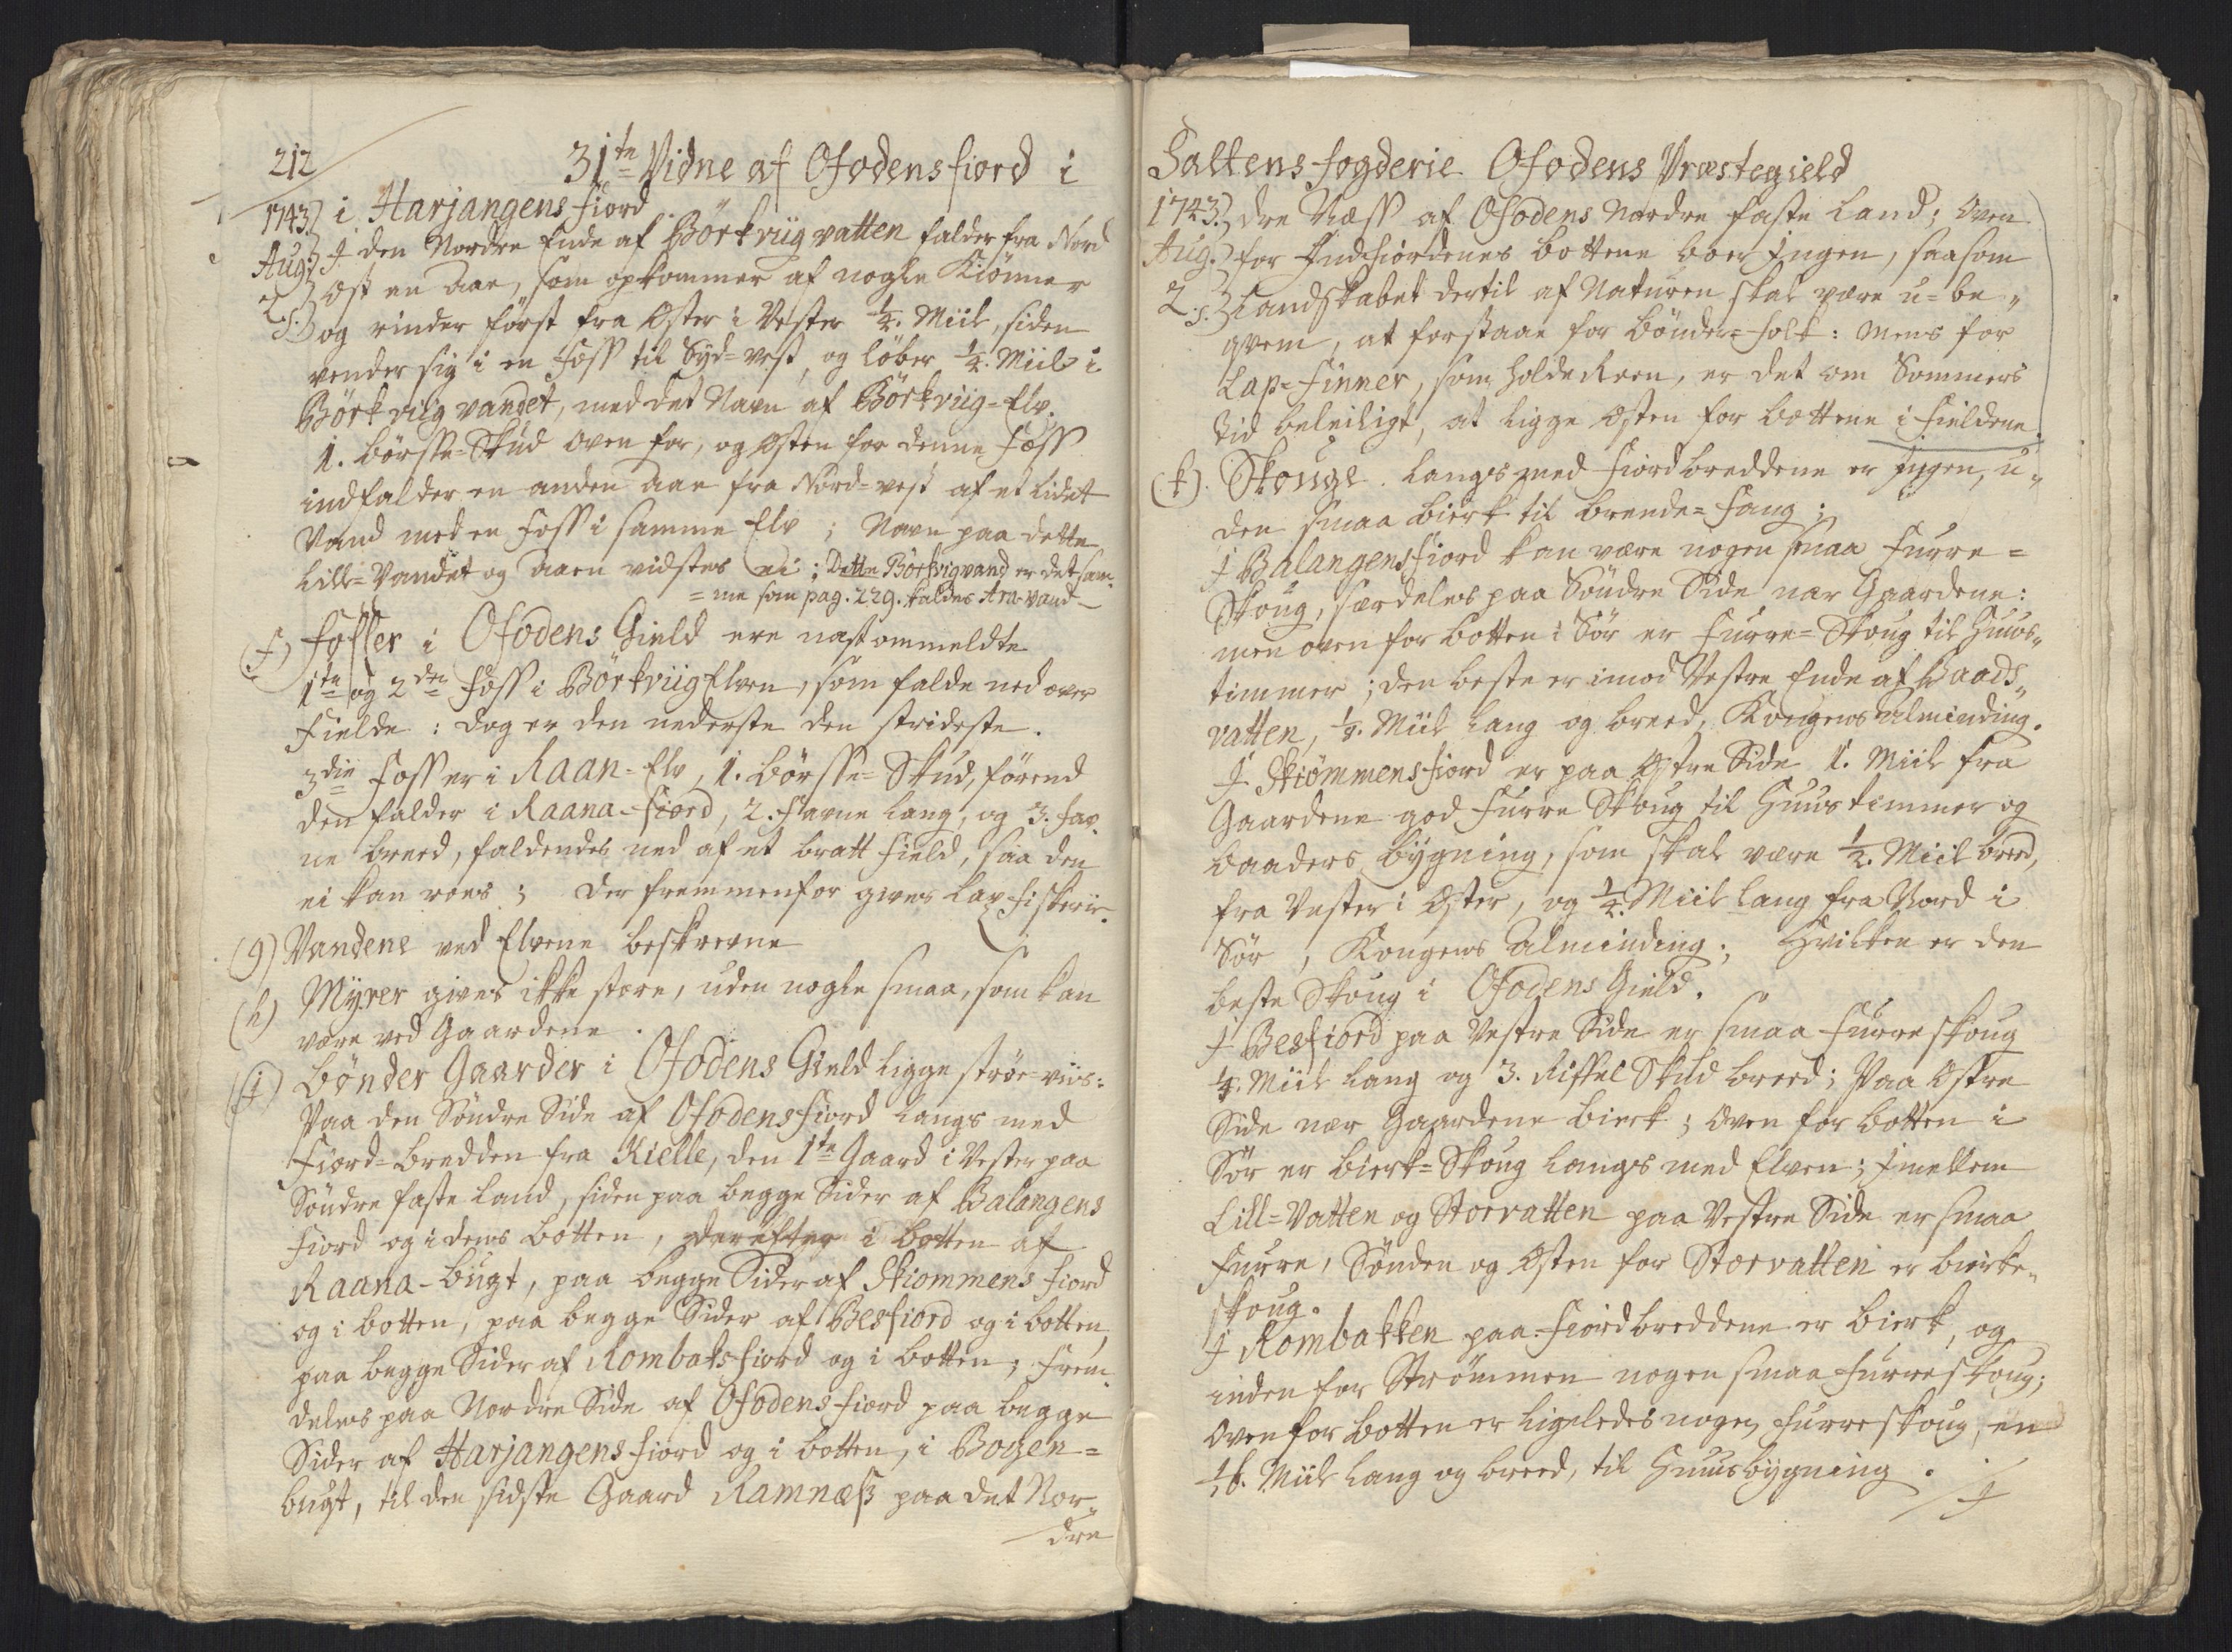 212
31te Vidne af Ofodensfiord i
1743. i Harjangens fiord
Aug. I den Nordre Ende af Börkviig vatten falder fra Nord
2. s. Ost en Aae, som opkommer af nogle Kiönner
og rinder först fra Oster i Vester 1/4. Miil, siden
vender sig i en Foss til Syd-vest, og löber 1/4. Miil i
Börkviig vandet, med det Navn af Börkviig-Elv.
1. börsse-Skud oven for, og Osten for denne Foss
indfalder en anden Aae fra Nord-vest af et lidet
Vand med en Foss i samme Elv; Navn paa dette
lille-Vandet og Aaen vidstes ei; Dette Börkvigvand er det sam-
=me som pag. 229. kaldes Arn-vand
(f) Fosser i Ofodens Gield ere nestommeldte
1te og 2den Foss i Börkviig Elven, som falde ned over
Fielde: dog er den nederste den strideste.
3die Foss er i Raan-Elv, 1. börsse-Skud, förend
den falder i Raana-fiord, 2. Favne lang, og 3. Fav-
ne breed, faldendes ned af et bratt Field, saa den
ei kan roes; der fremmenfor gives lax-fiskerie.
(g) Vandene ved Elvene beskrevne
(h) Myrer gives ikke store, uden nogle smaa, som kan
være ved Gaardene.
(i) Bönder Gaarder i Ofodens Gield ligge ströe-viis:
Paa den Söndre Side af Ofodensfiord langs med
Fiord-bredden fra Kielle, den 1te Gaard i Vester paa
Söndre faste land, siden paa begge Sider af Balangens
fiord og i dens botten, derefter i botten af
Raana-bugt, paa begge Sider af Skiommens fiord
og i botten, paa begge Sider af Besfiord og i botten,
paa begge Sider af Rombaksfiord og i botten; Frem-
deles paa Nordre Side af Ofodensfiord paa begge
Sider af Harjangens fiord og i botten, i Bogen=
bugt, til den sidste Gaard Ramnæss paa det Nor-
dre
Saltens fogderie Ofodens Præstegield
1743. dre Næss af Ofodens Nordre faste land; Oven
Aug. for Indfiordenes bottene boer Ingen, saasom
2. s. Landskabet dertil af Naturen skal være u-be-
qvem, at forstaae for bönder-folk: mens for
Lap-Finner, som holde Reen, er det om Sommers
tid beleiligt, at ligge Osten for bottene i Fieldene.
(k). Skouge. langs med Fiordbreddene er ingen, u-
den smaa bierk til brende-fang;
I Balangensfiord kan være nogen smaa Furre=
Skoug, særdeles paa Söndre Side nær Gaardene:
men oven for botten i Sör er Furre-Skoug til Huus-
timmer; den beste er imod Vestre Ende af Baads-
vatten, 1/8. Miil lang og breed, Kongens Alminding.
I Skiömmensfiord er paa Ostre Side 1. Miil fra
Gaardene god Furre Skoug til Huus timmer og
baaders bygning, som skal være 1/2. Miil breed,
fra Vester i Oster, og 1/4. Miil lang fra Nord i
Sör, Kongens Alminding; Hvilken er den
beste Skoug i Ofodens Gield.
I Besfiord paa Vestre Side er smaa Furreskoug
1/4. Miil lang og 3. Riffel Skud breed; Paa Ostre
Side nær Gaardene bierk; Oven for botten i
Sör er bierk-Skoug langs med Elven; Imellem
Lill-Vatten og Storvatten paa Vestre Side er smaa
Furre, Sönden og Osten for Storvatten er bierke-
skoug.
I Rombakken paa Fiordbreddene er bierk, og
inden for Strömmen nogen smaa Furreskoug;
Oven for botten er ligeledes nogen Furreskoug, en
1/6. Miil lang og breed, til Huusbygning.
I